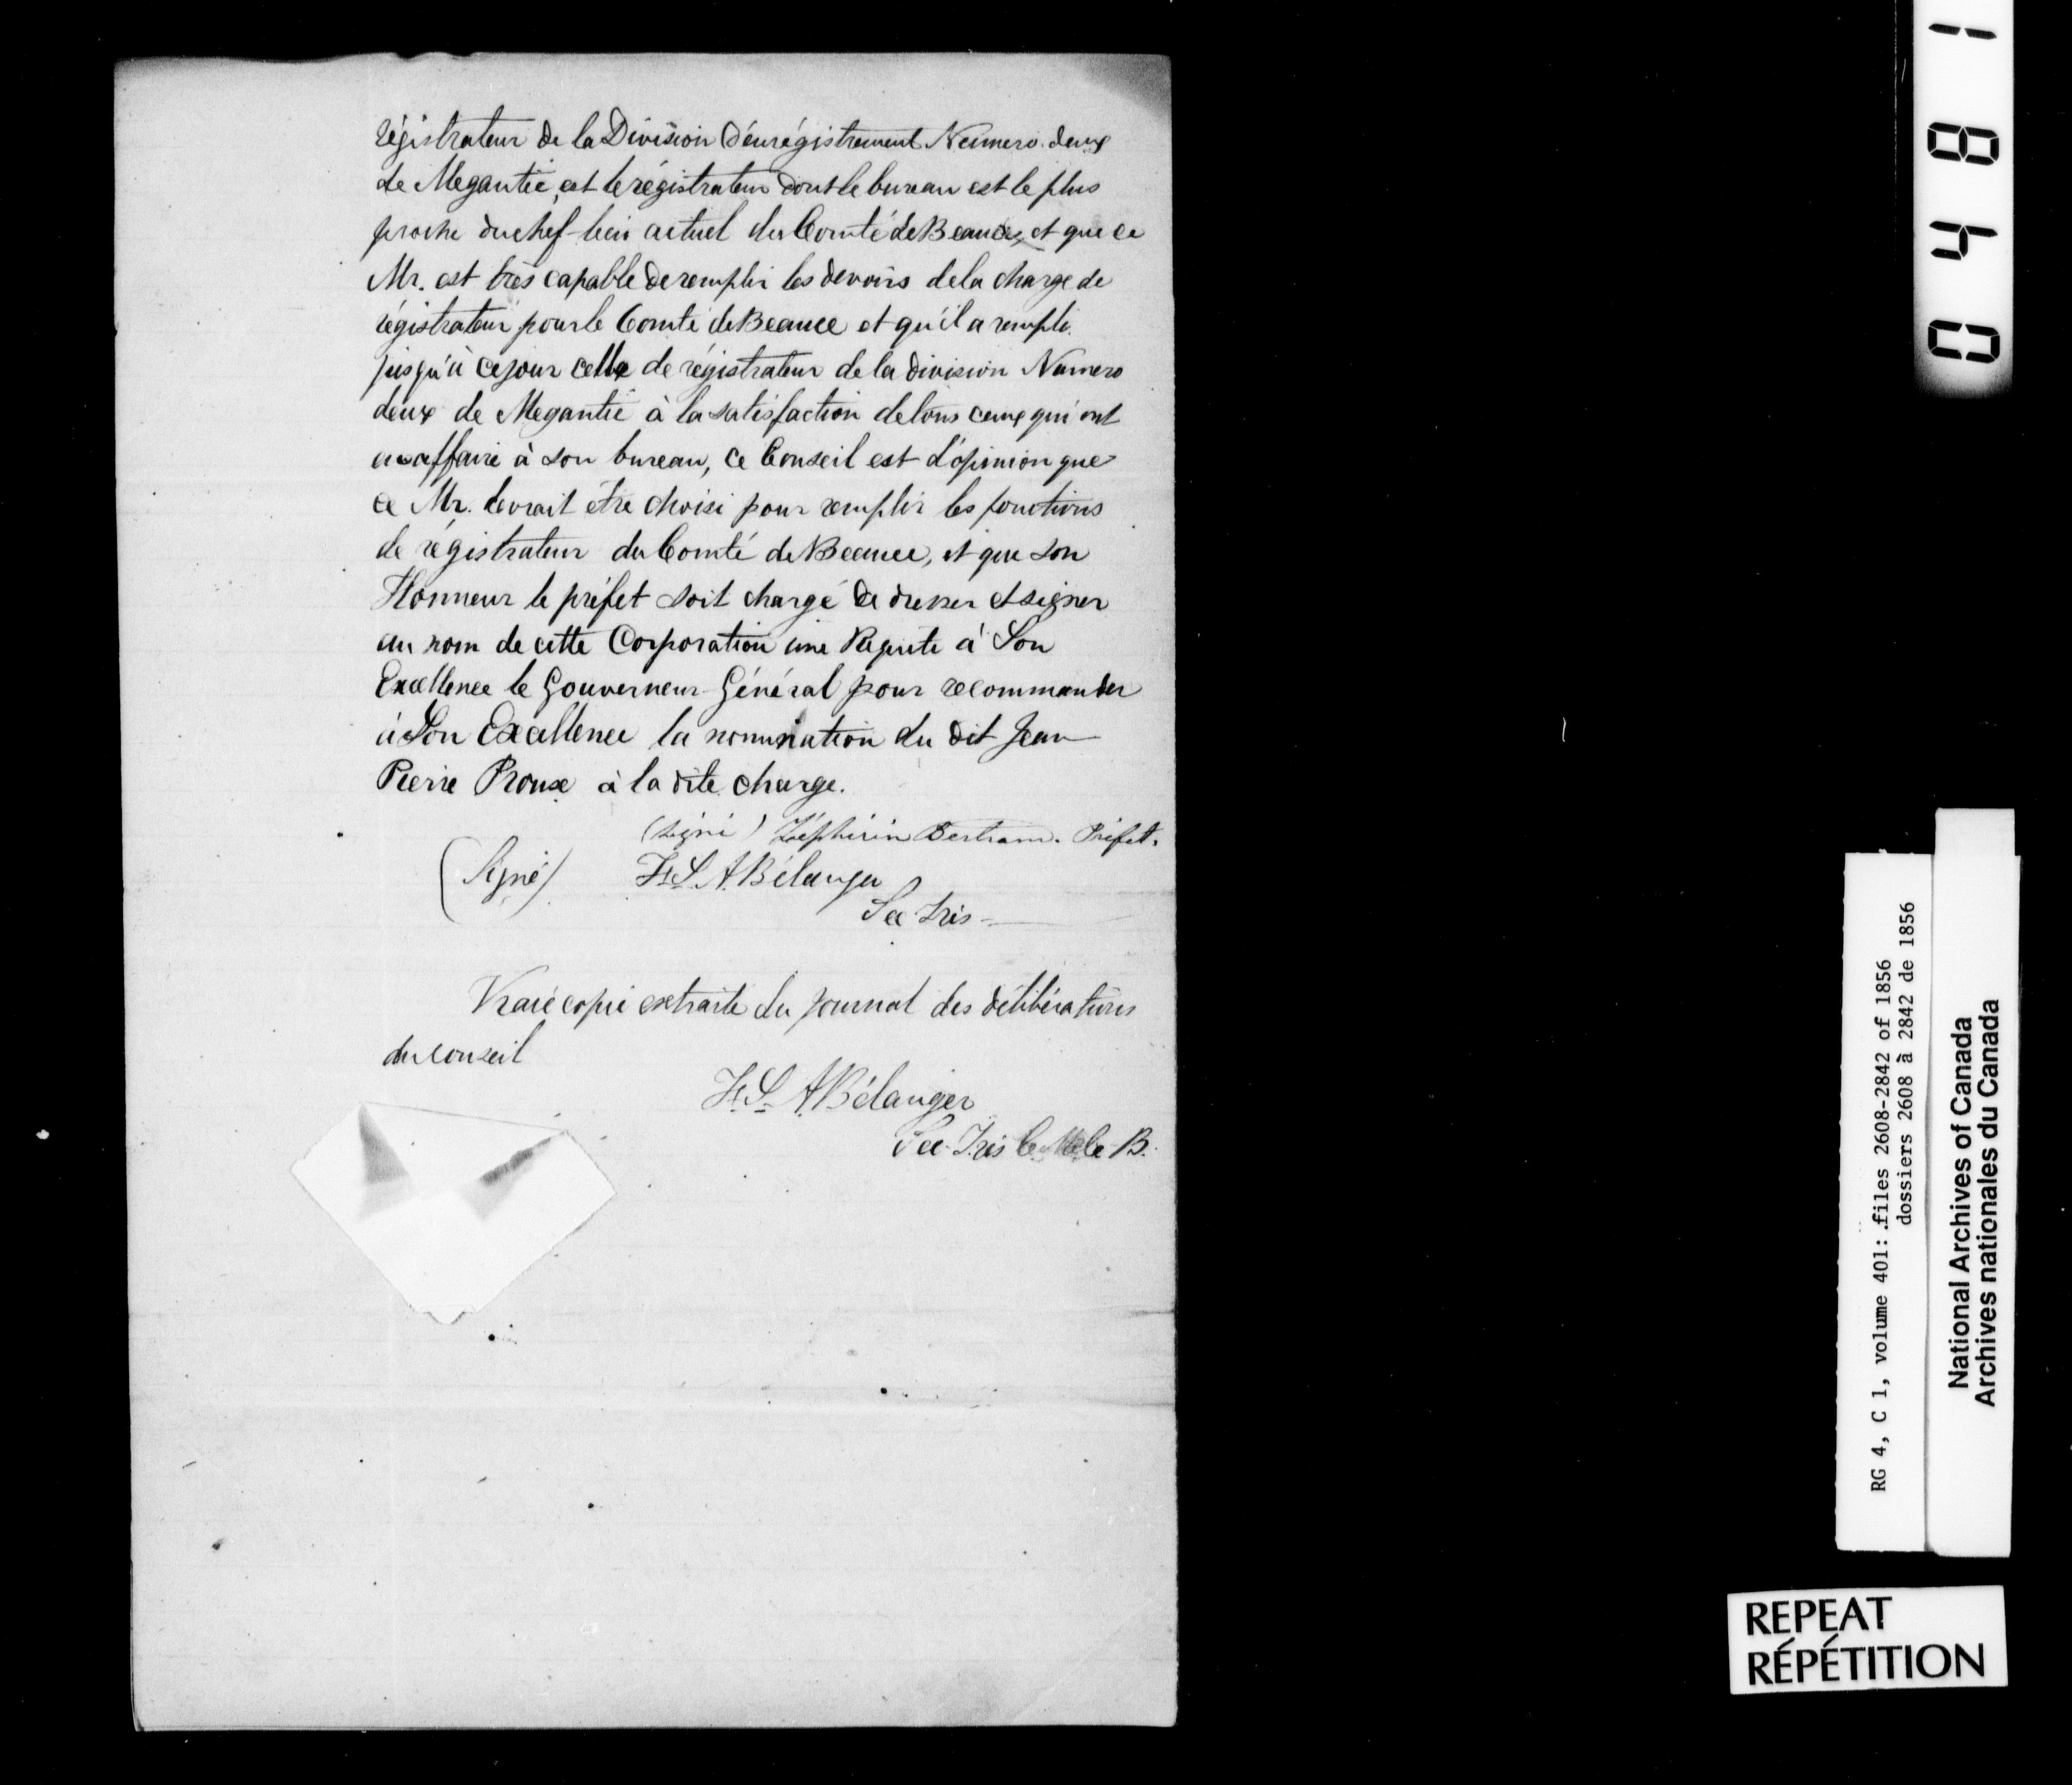 régistrateur de la Division d'enrégistrement Numero deux
de Megantic, est le régistrateur dont le bureau est le plus
proche du chef-lieu actuel du Comté de Beauce, et que ce
Mr. est très capable de remplir les devoirs de la charge de
régistrateur pour le Comté de Beauce et qu'il a rempli
jusqu'à ce jour celle de régistrateur de la division Numero
deux de Megantic à la satisfaction de tous ceux qui ont
eu affaire à son bureau, ce Conseil est d'opinion que
ce Mr. devrait être choisi pour remplir les fonctions
de régistrateur du Comté de Beauce, et que son
Honneur le préfet soit chargé de dresser et signer
au nom de cette Corporation une Requête à Son
Excellence le Gouverneur-Général pour recommander
à Son Excellence la nomination du dit Jean
Pierre Proux à la dite charge.
(signé) Zéphirin Bertrand. Préfet.
(Signé) F. S. A. Bélanger
Sec Trés
Vraie copie extraite du journal des délibérations
du conseil
F. S. A. Bélanger
Sec-Trés C. M. C. B.
0481
RG 4, C 1, volume 401: files 2608-2842 of 1856
dossiers 2608 à 2842 de 1856
National Archives of Canada
Archives nationales du Canada
REPEAT
RÉPÉTITION